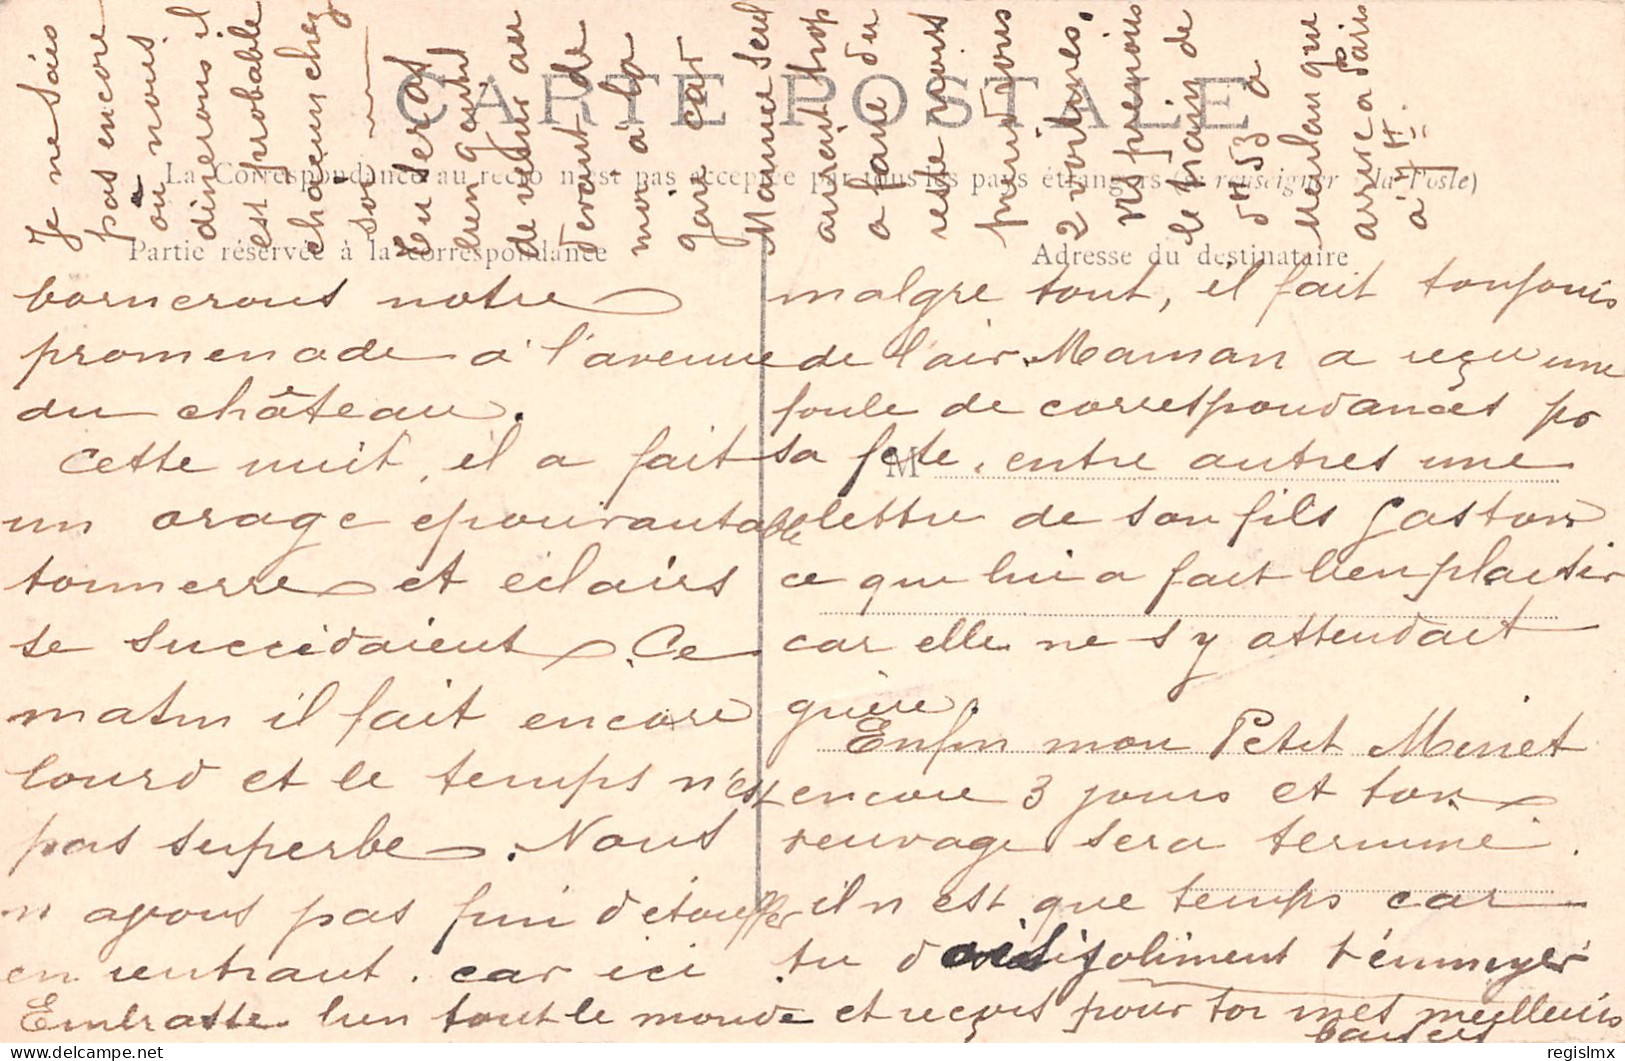 CARTE POSTALE
La Correspondance au recto n'est pas acceptée par tous les pays étrangers (Se renseigner à la Poste)
Partie réservée à la correspondance
Adresse du destinataire
M
bornerons notre
promenade à l'avenue
du château.
Cette nuit, il a fait
un orage épouvantable
tonnerre et éclairs
se succédaient. Ce
matin il fait encore
lourd et le temps n'est
pas superbe. Nous
n'avons pas fini d'étouffer
en rentrant. car ici
malgre tout, il fait toujours
de l'air. Maman a reçu une
foule de correspondances pr
sa fete, entre autres une
lettre de son fils Gaston
ce qui lui a fait bien plaisir
car elle ne s'y attendait
guère.
Enfin mon Petit Minet
encore 3 jours et ton
veuvage sera terminé.
il n'est que temps car
tu dois joliment t'ennuyer
Embrasse bien tout le monde et reçois pour toi mes meilleurs
baisers
Je ne sais
pas encore
où nous
dinerons il
est probable
chacun chez
soi
tu seras
bien gentil
de venir au
devant de
moi à la
gare car
Mamie seul
aurait trop
a faire du
reste nous
prendrons
2 voitures.
Ns prenons
le train de
1h 53 a
Meulan que
arrive a Paris
à